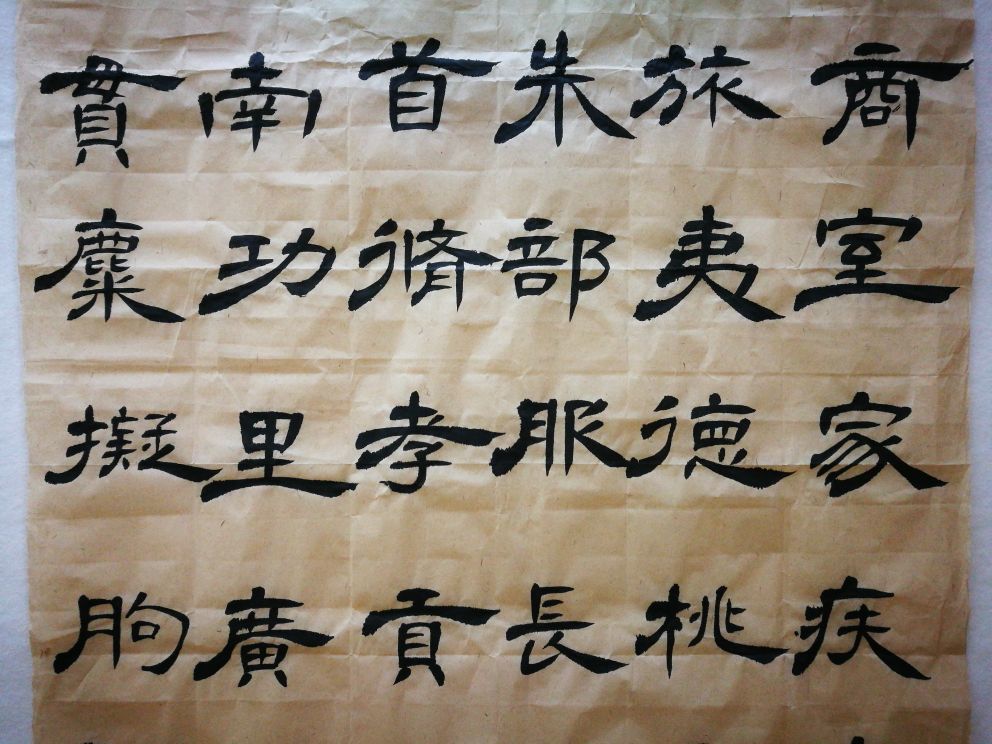 商室家疾
旅夷德桃
朱部服長
首脩孝貢
南功里廣
貫麋擬朐